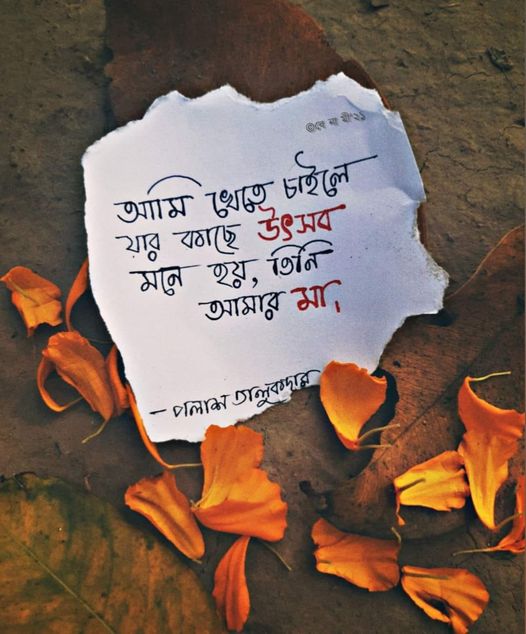 ©বে না মী'২১
আমি খেতে চাইলে
যার কাছে উৎসব
মনে হয়, তিনি
আমার মা।
— পলাশ তালুকদার